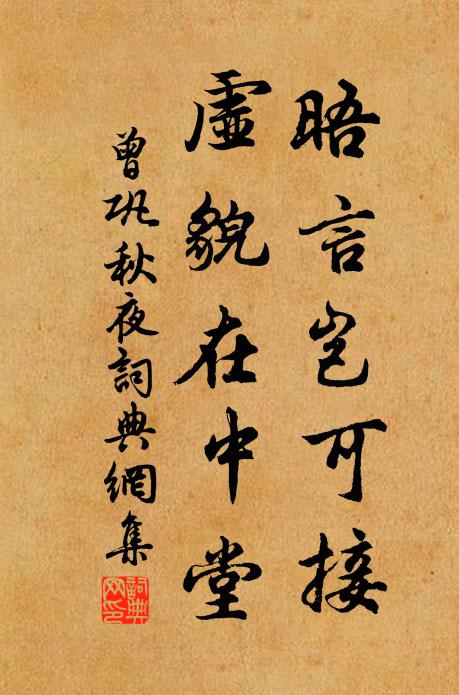 晤言豈可接
虛貌在中堂
曾巩秋夜詞典網集
詞典網印